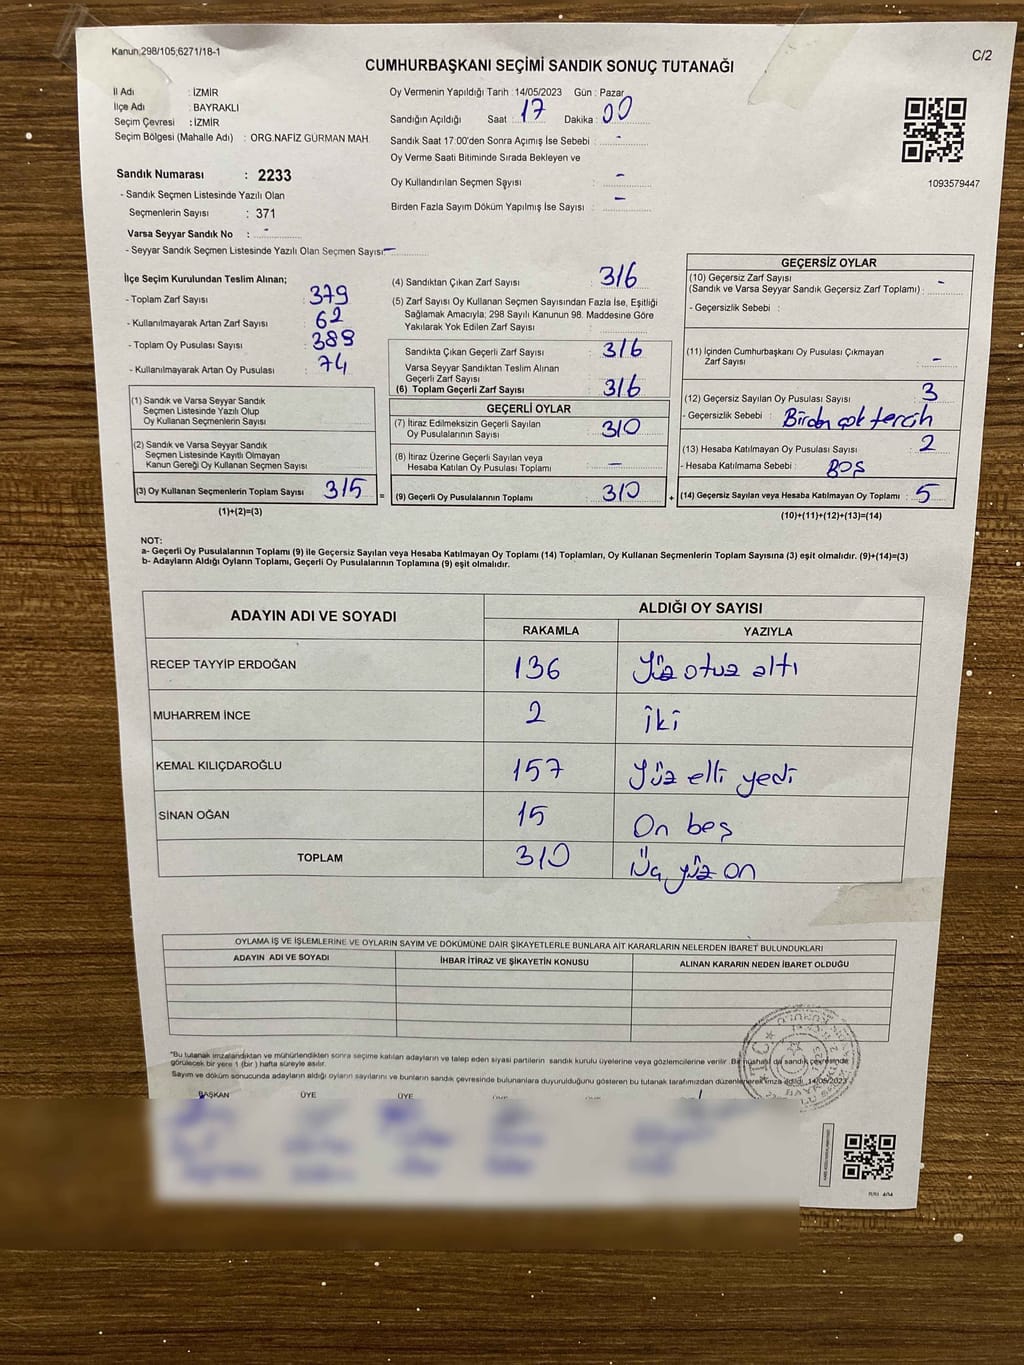 Kanun:298/105,6271/18-1
C/2
CUMHURBAŞKANI SEÇİMİ SANDIK SONUÇ TUTANAĞI
İl Adı : İZMİR
İlçe Adı : BAYRAKLI
Seçim Çevresi : İZMİR
Seçim Bölgesi (Mahalle Adı) : ORG.NAFİZ GÜRMAN MAH.
Sandık Numarası : 2233
- Sandık Seçmen Listesinde Yazılı Olan
Seçmenlerin Sayısı : 371
Varsa Seyyar Sandık No : -
- Seyyar Sandık Seçmen Listesinde Yazılı Olan Seçmen Sayısı: -
Oy Vermenin Yapıldığı Tarih : 14/05/2023 Gün : Pazar
Sandığın Açıldığı Saat : 17 Dakika : 00
Sandık Saat 17:00'den Sonra Açımış İse Sebebi : -
Oy Verme Saati Bitiminde Sırada Bekleyen ve
Oy Kullandırılan Seçmen Sayısı : -
Birden Fazla Sayım Döküm Yapılmış İse Sayısı : -
1093579447
İlçe Seçim Kurulundan Teslim Alınan;
- Toplam Zarf Sayısı : 379
- Kullanılmayarak Artan Zarf Sayısı : 62
- Toplam Oy Pusulası Sayısı : 389
- Kullanılmayarak Artan Oy Pusulası : 74
(1) Sandık ve Varsa Seyyar Sandık
Seçmen Listesinde Yazılı Olup
Oy Kullanan Seçmenlerin Sayısı
(2) Sandık ve Varsa Seyyar Sandık
Seçmen Listesinde Kayıtlı Olmayan
Kanun Gereği Oy Kullanan Seçmen Sayısı
(3) Oy Kullanan Seçmenlerin Toplam Sayısı 315 =
(1)+(2)=(3)
(4) Sandıktan Çıkan Zarf Sayısı : 316
(5) Zarf Sayısı Oy Kullanan Seçmen Sayısından Fazla İse, Eşitliği
Sağlamak Amacıyla; 298 Sayılı Kanunun 98. Maddesine Göre
Yakılarak Yok Edilen Zarf Sayısı :
Sandıkta Çıkan Geçerli Zarf Sayısı : 316
Varsa Seyyar Sandıktan Teslim Alınan
Geçerli Zarf Sayısı :
(6) Toplam Geçerli Zarf Sayısı : 316
GEÇERLİ OYLAR
(7) İtiraz Edilmeksizin Geçerli Sayılan
Oy Pusulalarının Sayısı : 310
(8) İtiraz Üzerine Geçerli Sayılan veya
Hesaba Katılan Oy Pusulası Toplamı : -
(9) Geçerli Oy Pusulalarının Toplamı : 310 +
GEÇERSİZ OYLAR
(10) Geçersiz Zarf Sayısı
(Sandık ve Varsa Seyyar Sandık Geçersiz Zarf Toplamı) : -
- Geçersizlik Sebebi :
(11) İçinden Cumhurbaşkanı Oy Pusulası Çıkmayan
Zarf Sayısı : -
(12) Geçersiz Sayılan Oy Pusulası Sayısı : 3
- Geçersizlik Sebebi : Birden çok tercih
(13) Hesaba Katılmayan Oy Pusulası Sayısı : 2
- Hesaba Katılmama Sebebi : BOŞ
(14) Geçersiz Sayılan veya Hesaba Katılmayan Oy Toplamı : 5
(10)+(11)+(12)+(13)=(14)
NOT:
a- Geçerli Oy Pusulalarının Toplamı (9) ile Geçersiz Sayılan veya Hesaba Katılmayan Oy Toplamı (14) Toplamları, Oy Kullanan Seçmenlerin Toplam Sayısına (3) eşit olmalıdır. (9)+(14)=(3)
b- Adayların Aldığı Oyların Toplamı, Geçerli Oy Pusulalarının Toplamına (9) eşit olmalıdır.
ADAYIN ADI VE SOYADI
ALDIĞI OY SAYISI
RAKAMLA YAZIYLA
RECEP TAYYİP ERDOĞAN 136 Yüz otuz altı
MUHARREM İNCE 2 İki
KEMAL KILIÇDAROĞLU 157 Yüz elli yedi
SİNAN OĞAN 15 On beş
TOPLAM 310 Üç yüz on
OYLAMA İŞ VE İŞLEMLERİNE VE OYLARIN SAYIM VE DÖKÜMÜNE DAİR ŞİKAYETLERLE BUNLARA AİT KARARLARIN NELERDEN İBARET BULUNDUKLARI
ADAYIN ADI VE SOYADI İHBAR İTİRAZ VE ŞİKAYETİN KONUSU ALINAN KARARIN NEDEN İBARET OLDUĞU
*Bu tutanak imzalandıktan ve mühürlendikten sonra seçime katılan adayların ve talep eden siyasi partilerin sandık kurulu üyelerine veya gözlemcilerine verilir. Bir nüshası da sandık çevresinde
görülecek bir yere 1 (bir) hafta süreyle asılır.
Sayım ve döküm sonucunda adayların aldığı oyların sayılarını ve bunların sandık çevresinde bulunanlara duyurulduğunu gösteren bu tutanak tarafımızdan düzenlenerek imza edildi. 14/05/2023
BAŞKAN ÜYE ÜYE